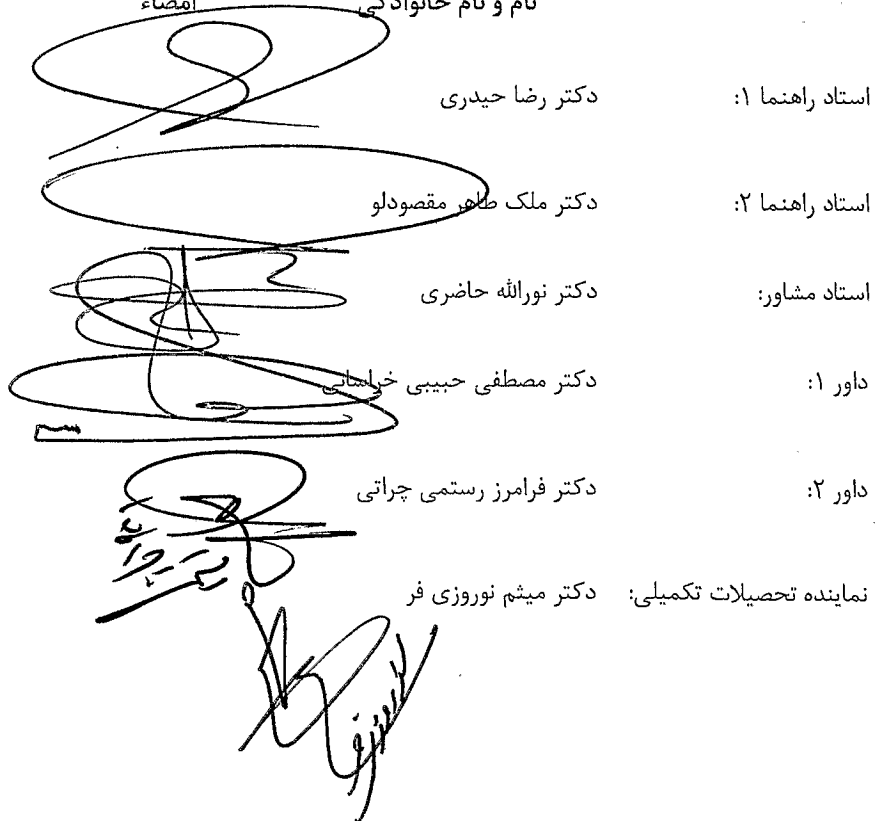 نام و نام خانوادگی امضاء
استاد راهنما ۱: دکتر رضا حیدری
استاد راهنما ۲: دکتر ملک طاهر مقصودلو
استاد مشاور: دکتر نورالله حاضری
داور ۱: دکتر مصطفی حبیبی خراسانی
داور ۲: دکتر فرامرز رستمی چراتی
نماینده تحصیلات تکمیلی: دکتر میثم نوروزی فر